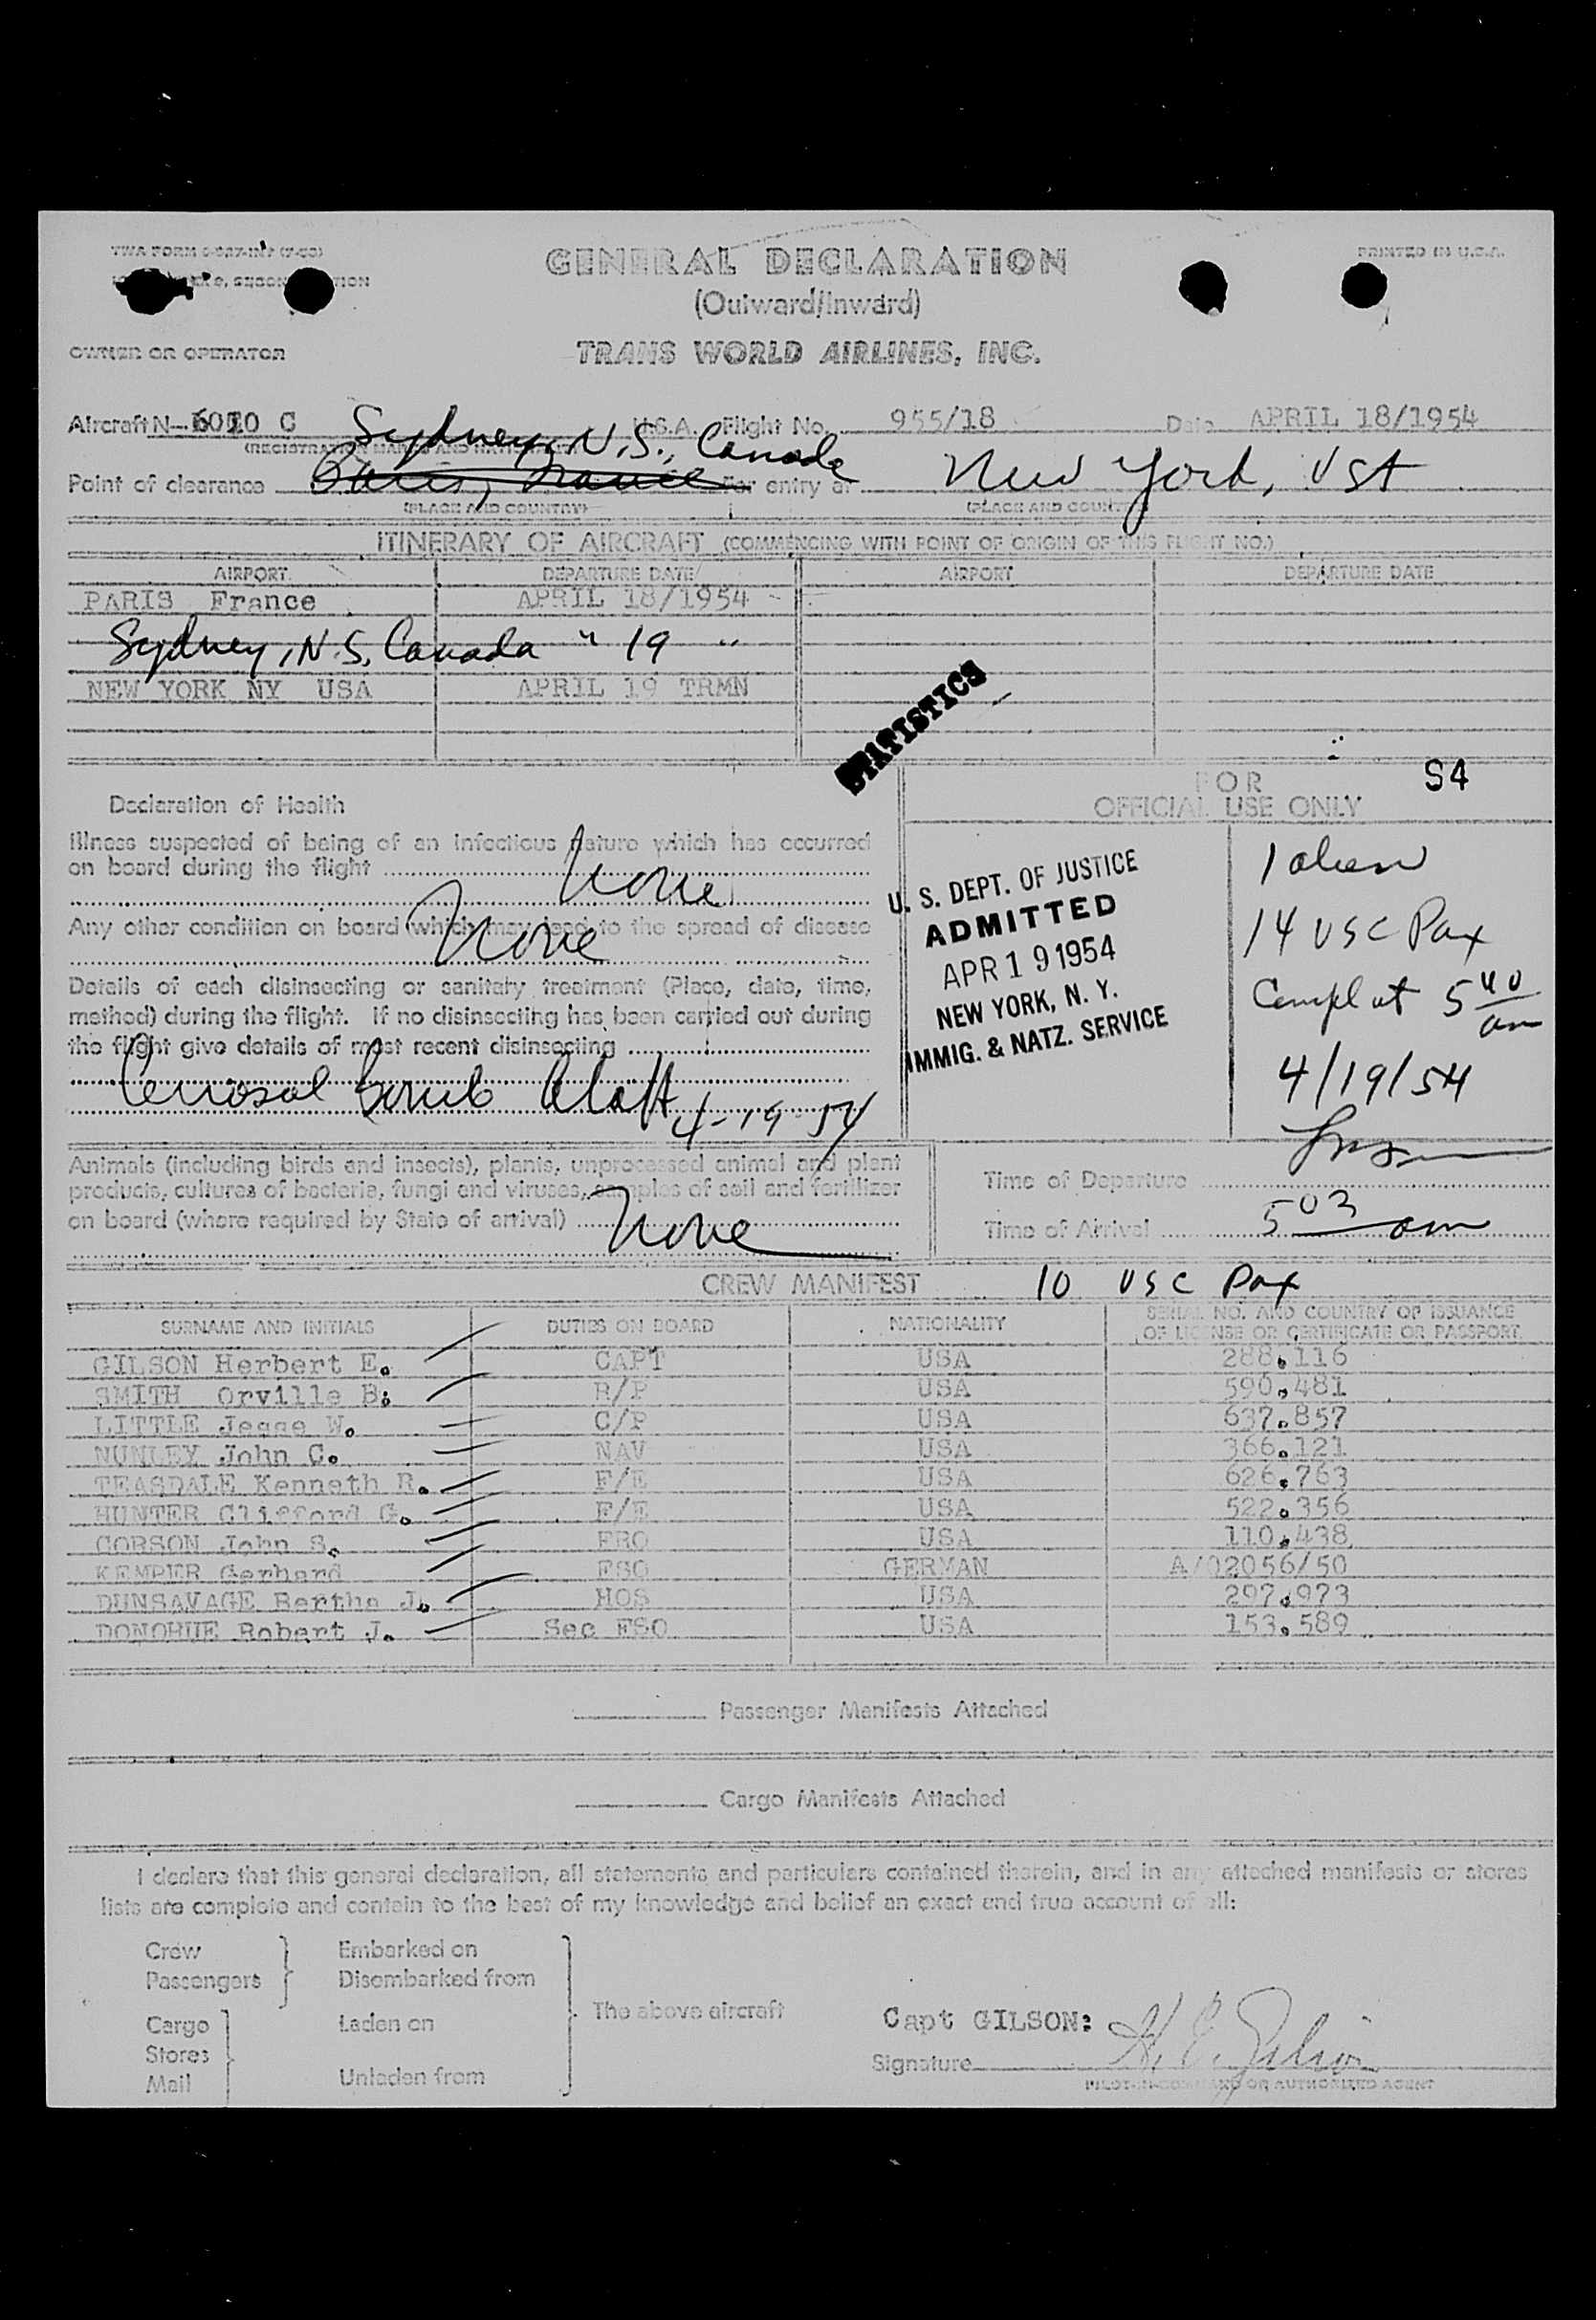 GENERAL DECLARATION
PRINTED IN U.S.A.
(Outward/Inward)
OWNER OR OPERATOR
TRANS WORLD AIRLINES, INC.
Aircraft N- C U.S.A. Flight No. 955/18 Date APRIL 18/1954
Sydney, N.S., Canada
Point of clearance Paris, France For entry at New York, USA
(PLACE AND COUNTRY) (PLACE AND COUNTRY)
ITINERARY OF AIRCRAFT (COMMENCING WITH POINT OF ORIGIN OF THIS FLIGHT NO.)
AIRPORT DEPARTURE DATE AIRPORT DEPARTURE DATE
PARIS France APRIL 18/1954
Sydney, N.S, Canada " 19 "
NEW YORK NY USA APRIL 19 TRMN
STATISTICS
FOR S4
OFFICIAL USE ONLY
Declaration of Health
Illness suspected of being of an infectious nature which has occurred
on board during the flight None
Any other condition on board which may lead to the spread of disease
None
Details of each disinsecting or sanitary treatment (Place, date, time,
method) during the flight. If no disinsecting has been carried out during
the flight give details of most recent disinsecting
Bomb Aloft
4-19-54
U. S. DEPT. OF JUSTICE
ADMITTED
APR 19 1954
NEW YORK, N. Y.
IMMIG. & NATZ. SERVICE
1 alien
14 USC Pax
Compl at 5 40 am
4/19/54
Animals (including birds and insects), plants, unprocessed animal and plant
products, cultures of bacteria, fungi and viruses, samples of soil and fertilizer
on board (where required by State of arrival) None
Time of Departure
Time of Arrival 5 03 am
CREW MANIFEST 10 USC Pax
SURNAME AND INITIALS DUTIES ON BOARD NATIONALITY SERIAL NO. AND COUNTRY OF ISSUANCE
OF LICENSE OR CERTIFICATE OR PASSPORT
GILSON Herbert E. CAPT USA 288.116
SMITH Orville B. R/P USA 590.481
LITTLE Jesse W. C/P USA 637.857
NUNLEY John C. NAV USA 366.121
TEASDALE Kenneth R. F/E USA 626.763
HUNTER Clifford G. F/E USA 522.356
CORSON John S. FRO USA 110.438
KEMPER Gerhard FSO GERMAN A/02056/50
DUNSAVAGE Bertha J. HOS USA 297.973
DONOHUE Robert J. Sec FSO USA 153.589
Passenger Manifests Attached
Cargo Manifests Attached
I declare that this general declaration, all statements and particulars contained therein, and in any attached manifests or stores
lists are complete and contain to the best of my knowledge and belief an exact and true account of all:
Crew Embarked on
Passengers Disembarked from
The above aircraft
Cargo Laden on
Stores
Mail Unladen from
Capt GILSON: H. E. Gilson
Signature
PILOT-IN-COMMAND OR AUTHORIZED AGENT